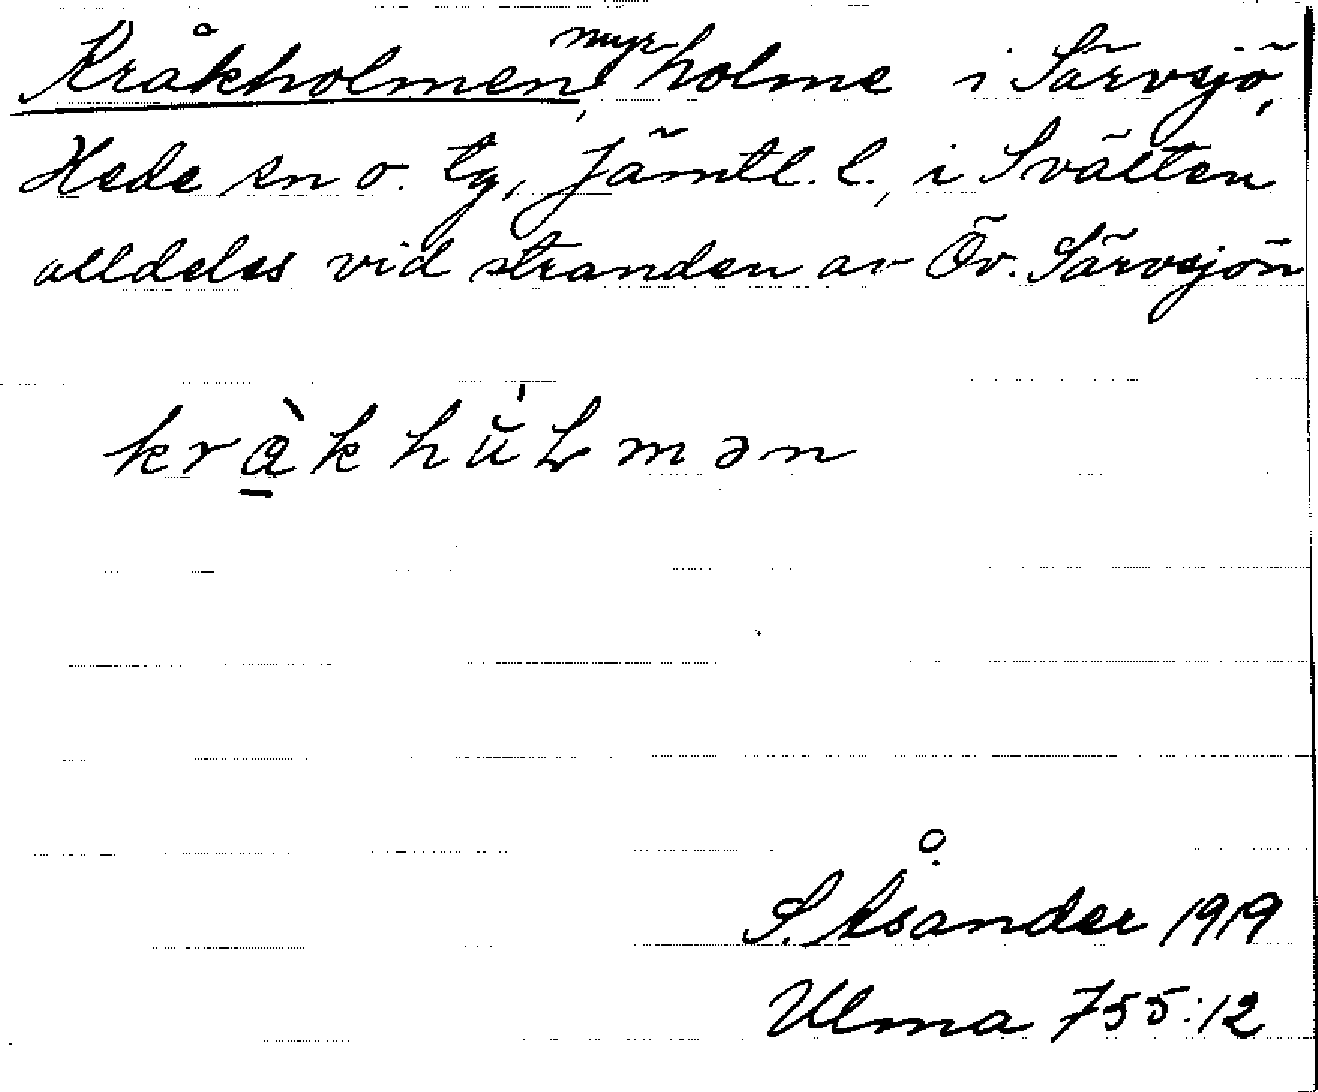 Kråkholmen, myrholme i Särvsjö,
Hede sn o. tg, Jämtl. l., i Svälten
alldeles vid stranden av Öv. Särvsjön
krà̱khù̆ʟmən
S. Åsander 1919
Ulma 755:12